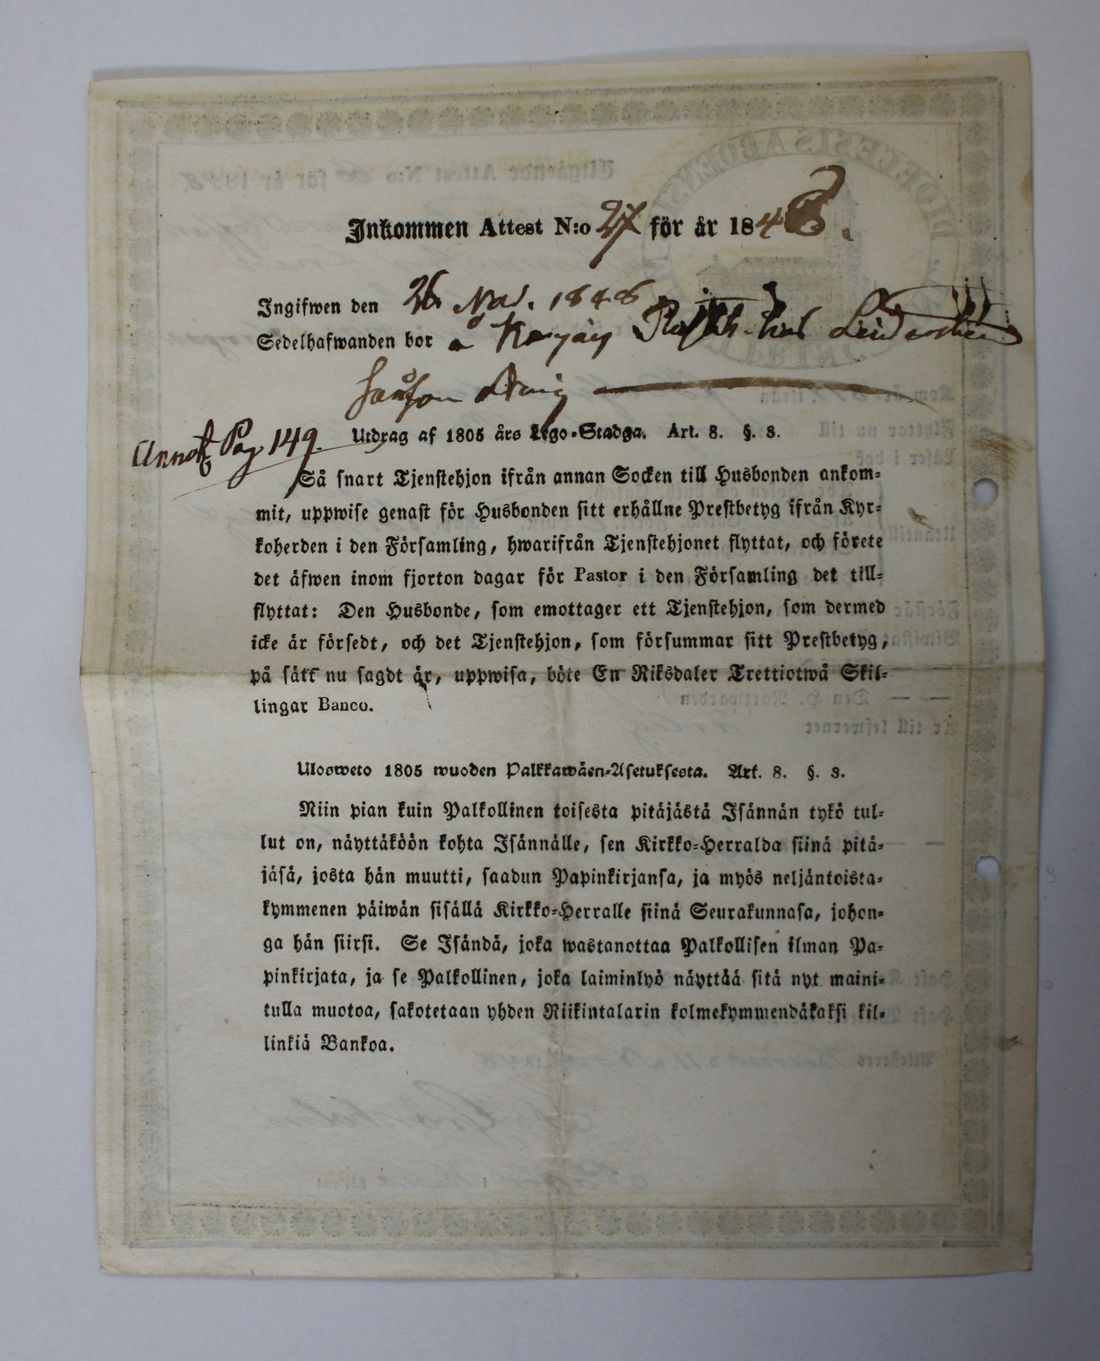 Inkommen Attest N:o 27 för år 1848.
Ingifwen den 26 Nov. 1848
Sedelhafwanden bor å
Annot. Pag 149.
Utdrag af 1805 års Lego-Stadga. Art. 8. §. 3.
Så snart Tjenstehjon ifrån annan Socken till Husbonden ankom-
mit, uppwise genast för Husbonden sitt erhållne Prestbetyg ifrån Kyr-
koherden i den Församling, hwarifrån Tjenstehjonet flyttat, och förete
det äfwen inom fjorton dagar för Pastor i den Församling det till-
flyttat: Den Husbonde, som emottager ett Tjenstehjon, som dermed
icke är försedt, och det Tjenstehjon, som försummar sitt Prestbetyg,
på sätt nu sagdt är, uppwisa, böte En Riksdaler Trettiotwå Skil-
lingar Banco.
Ulosweto 1805 wuoden Palkkawäen-Asetuksesta. Art. 8. §. 3.
Niin pian kuin Palkollinen toisesta pitäjästä Isännän tykö tul-
lut on, näyttäköön kohta Isännälle, sen Kirkko-Herralda siinä pitä-
jäsä, josta hän muutti, saadun Papinkirjansa, ja myös neljäntoista-
kymmenen päiwän sisällä Kirkko-Herralle siinä Seurakunnasa, johon-
ga hän siirsi. Se Isändä, joka wastanottaa Palkollisen ilman Pa-
pinkirjata, ja se Palkollinen, joka laiminlyö näyttää sitä nyt maini-
tulla muotoa, sakotetaan yhden Riikintalarin kolmekymmendäkaksi kil-
linkiä Bankoa.